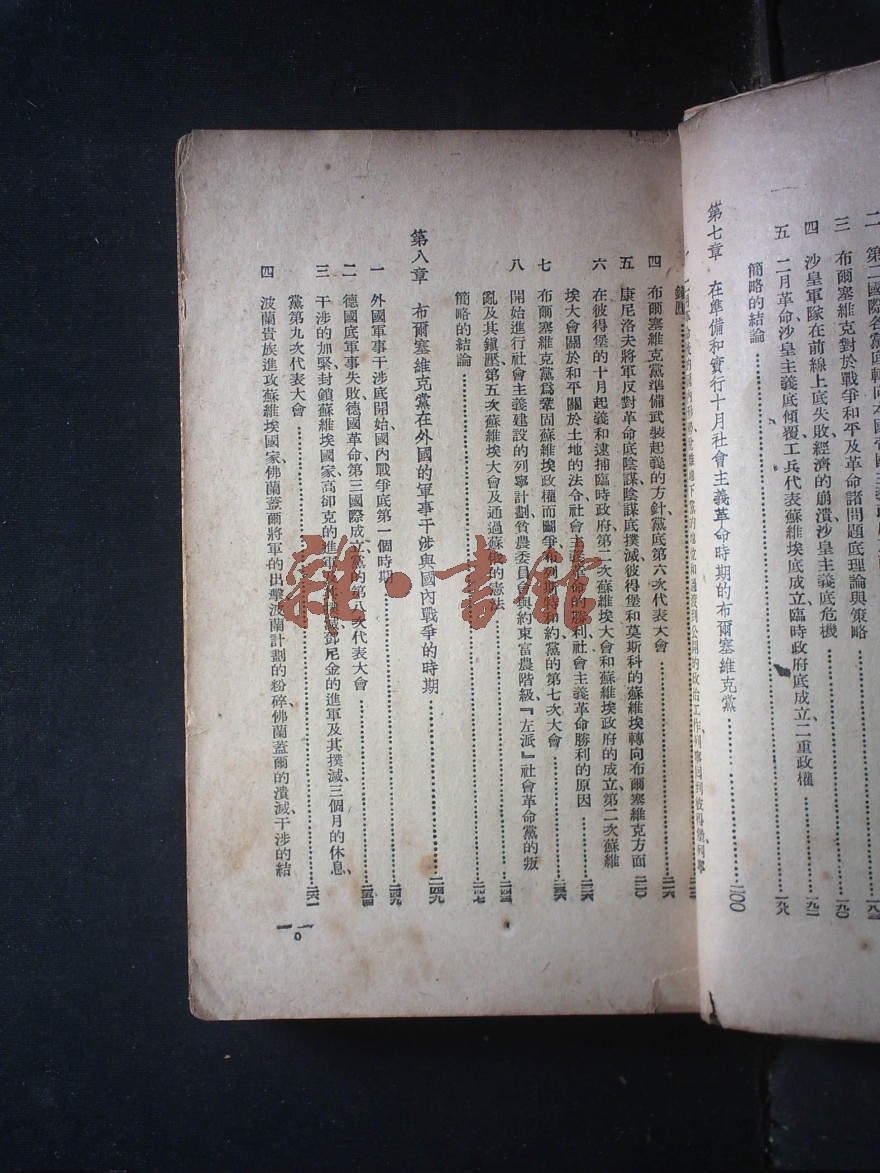 三 布爾塞維克對於戰爭和平及革命諸問題底理論與策略……一九〇
四 沙皇軍隊在前線上底失敗、經濟的崩潰、沙皇主義底危機……一九二
五 二月革命、沙皇主義底傾覆、工兵代表蘇維埃底成立、臨時政府底成立、二重政權
簡略的結論……一九八
第七章 在準備和實行十月社會主義革命時期的布爾塞維克黨……二〇〇
四 布爾塞維克黨準備武裝起義的方針、黨底第六次代表大會……二一六
五 康尼洛夫將軍反對革命底陰謀、陰謀底撲滅、彼得堡和莫斯科的蘇維埃轉向布爾塞維克方面
六 在彼得堡的十月起義和逮捕臨時政府、第二次蘇維埃大會和蘇維埃政府的成立、第二次蘇維
埃大會關於和平關於土地的法令、社會主義革命的勝利、社會主義革命勝利的原因
七 布爾塞維克黨爲鞏固蘇維埃政權而鬭爭、布列斯特和約、黨的第七次大會
八 開始進行社會主義建設的列寧計劃、貧農委員會與約束富農階級、『左派』社會革命黨的叛
亂及其鎮壓、第五次蘇維埃大會及通過蘇俄的憲法
簡略的結論……二四七
第八章 布爾塞維克黨在外國的軍事干涉與國內戰爭的時期……二四九
一 外國軍事干涉底開始、國內戰爭底第一個時期……二四九
二 德國底軍事失敗、德國革命、第三國際成立、黨的第八次代表大會
三 干涉的加緊、封鎖蘇維埃國家、高卻克的進軍及其撲滅、鄧尼金的進軍及其撲滅、三個月的休息、
黨第九次代表大會……二六一
四 波蘭貴族進攻蘇維埃國家、佛蘭蓋爾將軍的出擊、波蘭計劃的粉碎、佛蘭蓋爾的潰滅、干涉的結
雜·書館